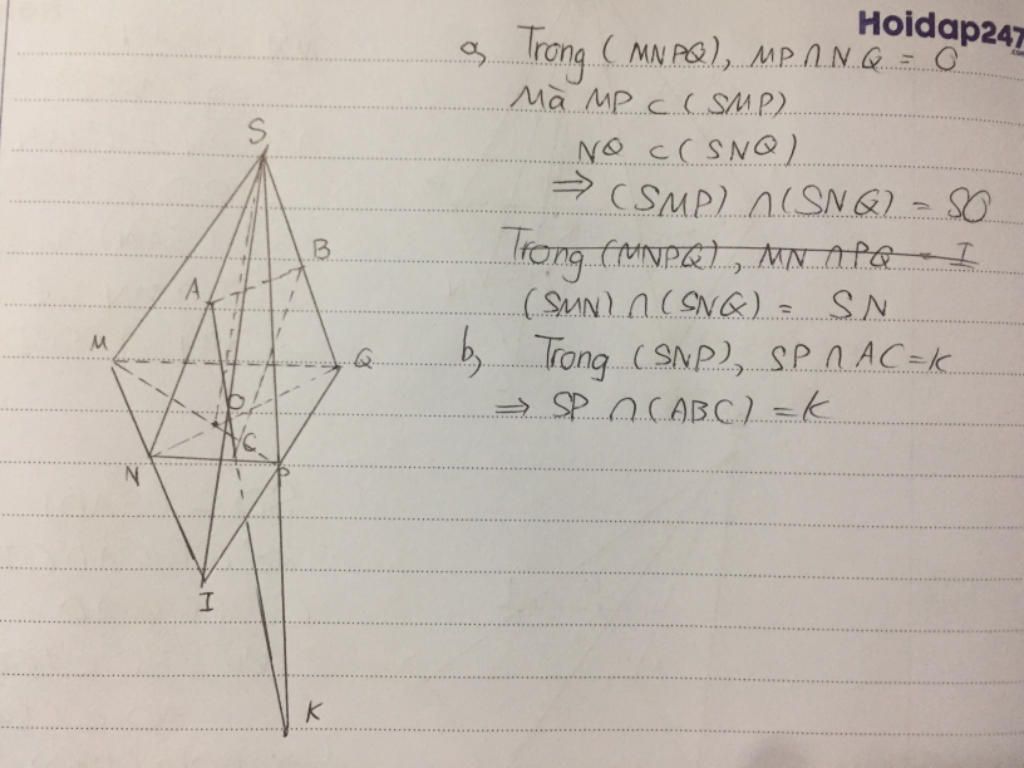 Hoidap247
.com
a, Trong (MNPQ), MP ∩ NQ = O
Mà MP ⊂ (SMP)
NQ ⊂ (SNQ)
⇒ (SMP) ∩ (SNQ) = SO
Trong (MNPQ), MN ∩ PQ = I
(SMN) ∩ (SNQ) = SN
b, Trong (SNP), SP ∩ AC = K
⇒ SP ∩ (ABC) = K
S
B
A
M
Q
O
C
N
P
I
K